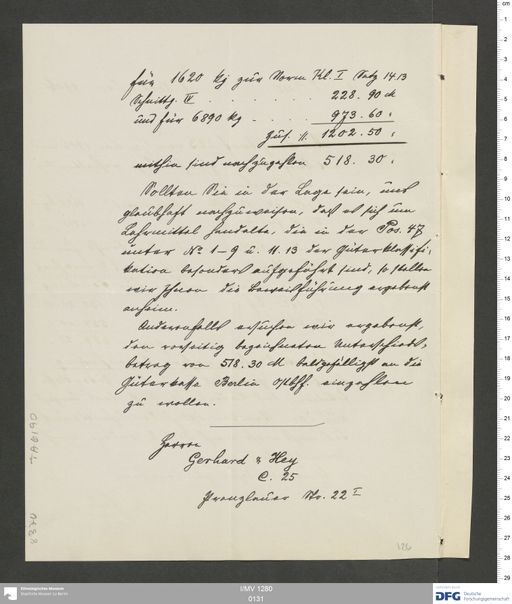 für 1620 kg zur Norm Kl. I Satz 1413
Schnittg. IV . . . . . . 228. 90 M
und für 6890 kg . . . . 973. 60 "
Zus. M. 1202. 50 "
mithin sind nachzuzahlen 518. 30 "
Sollten Sie in der Lage sein, uns
glaubhaft nachzuweisen, daß es sich um
Lehrmittel handelte, die in der Pos. 47
unter No 1-9 u. 11. 13 der Güterklassifi-
kation besonders aufgeführt sind, so stellen
wir Ihnen die Beweisführung ergebenst
anheim.
Anderenfalls ersuchen wir ergebenst,
den vorseitig bezeichneten Unterschieds-
betrag von 518. 30 M baldgefälligst an die
Güterkasse Berlin Ostbhf. einzahlen
zu wollen.
Herren
Gerhard & Hey
C. 25
Prenzlauer Str. 22 I
126
Ethnologisches Museum
Staatliche Museen zu Berlin
I/MV 1280
0131
DFG Deutsche
Forschungsgemeinschaft